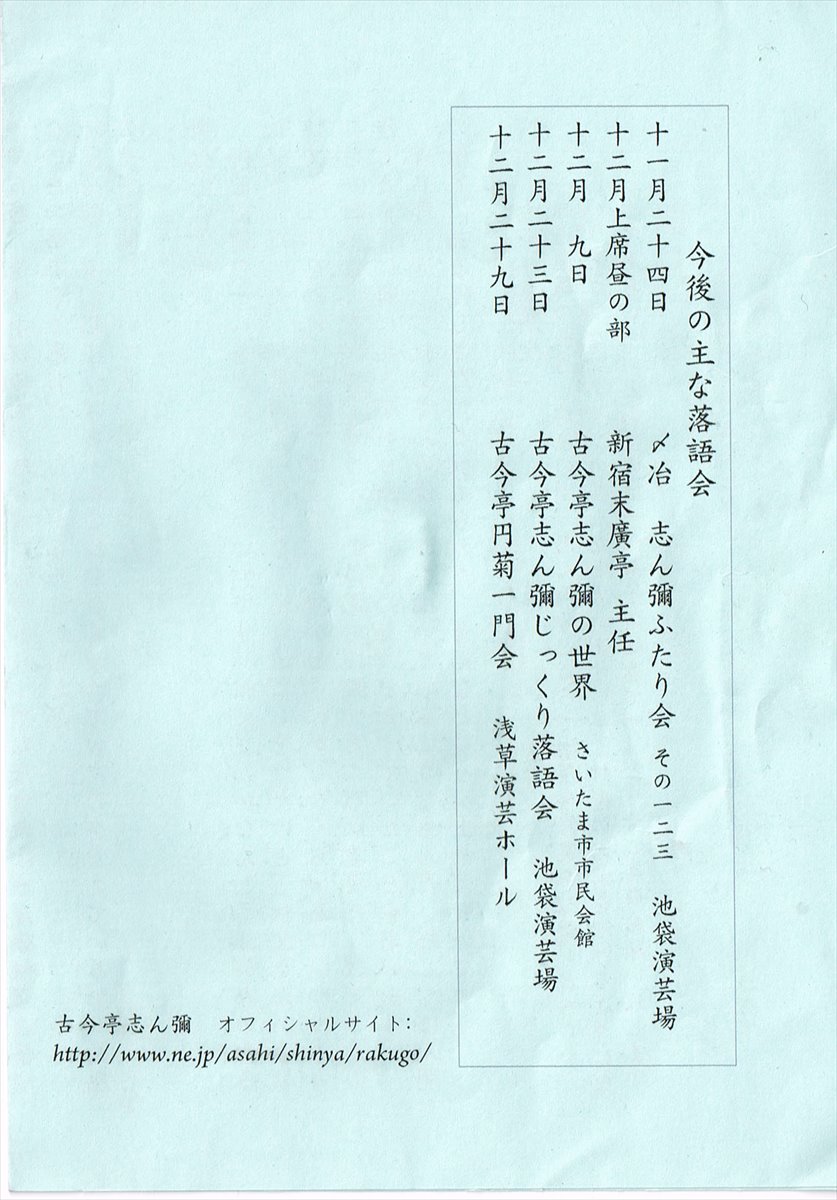 今後の主な落語会
十一月二十四日　〆冶　志ん彌ふたり会　その一二三　池袋演芸場
十二月上席昼の部　新宿末廣亭　主任
十二月　九日　古今亭志ん彌の世界　さいたま市市民会館
十二月二十三日　古今亭志ん彌じっくり落語会　池袋演芸場
十二月二十九日　古今亭円菊一門会　浅草演芸ホール
古今亭志ん彌　オフィシャルサイト：
http://www.ne.jp/asahi/shinya/rakugo/